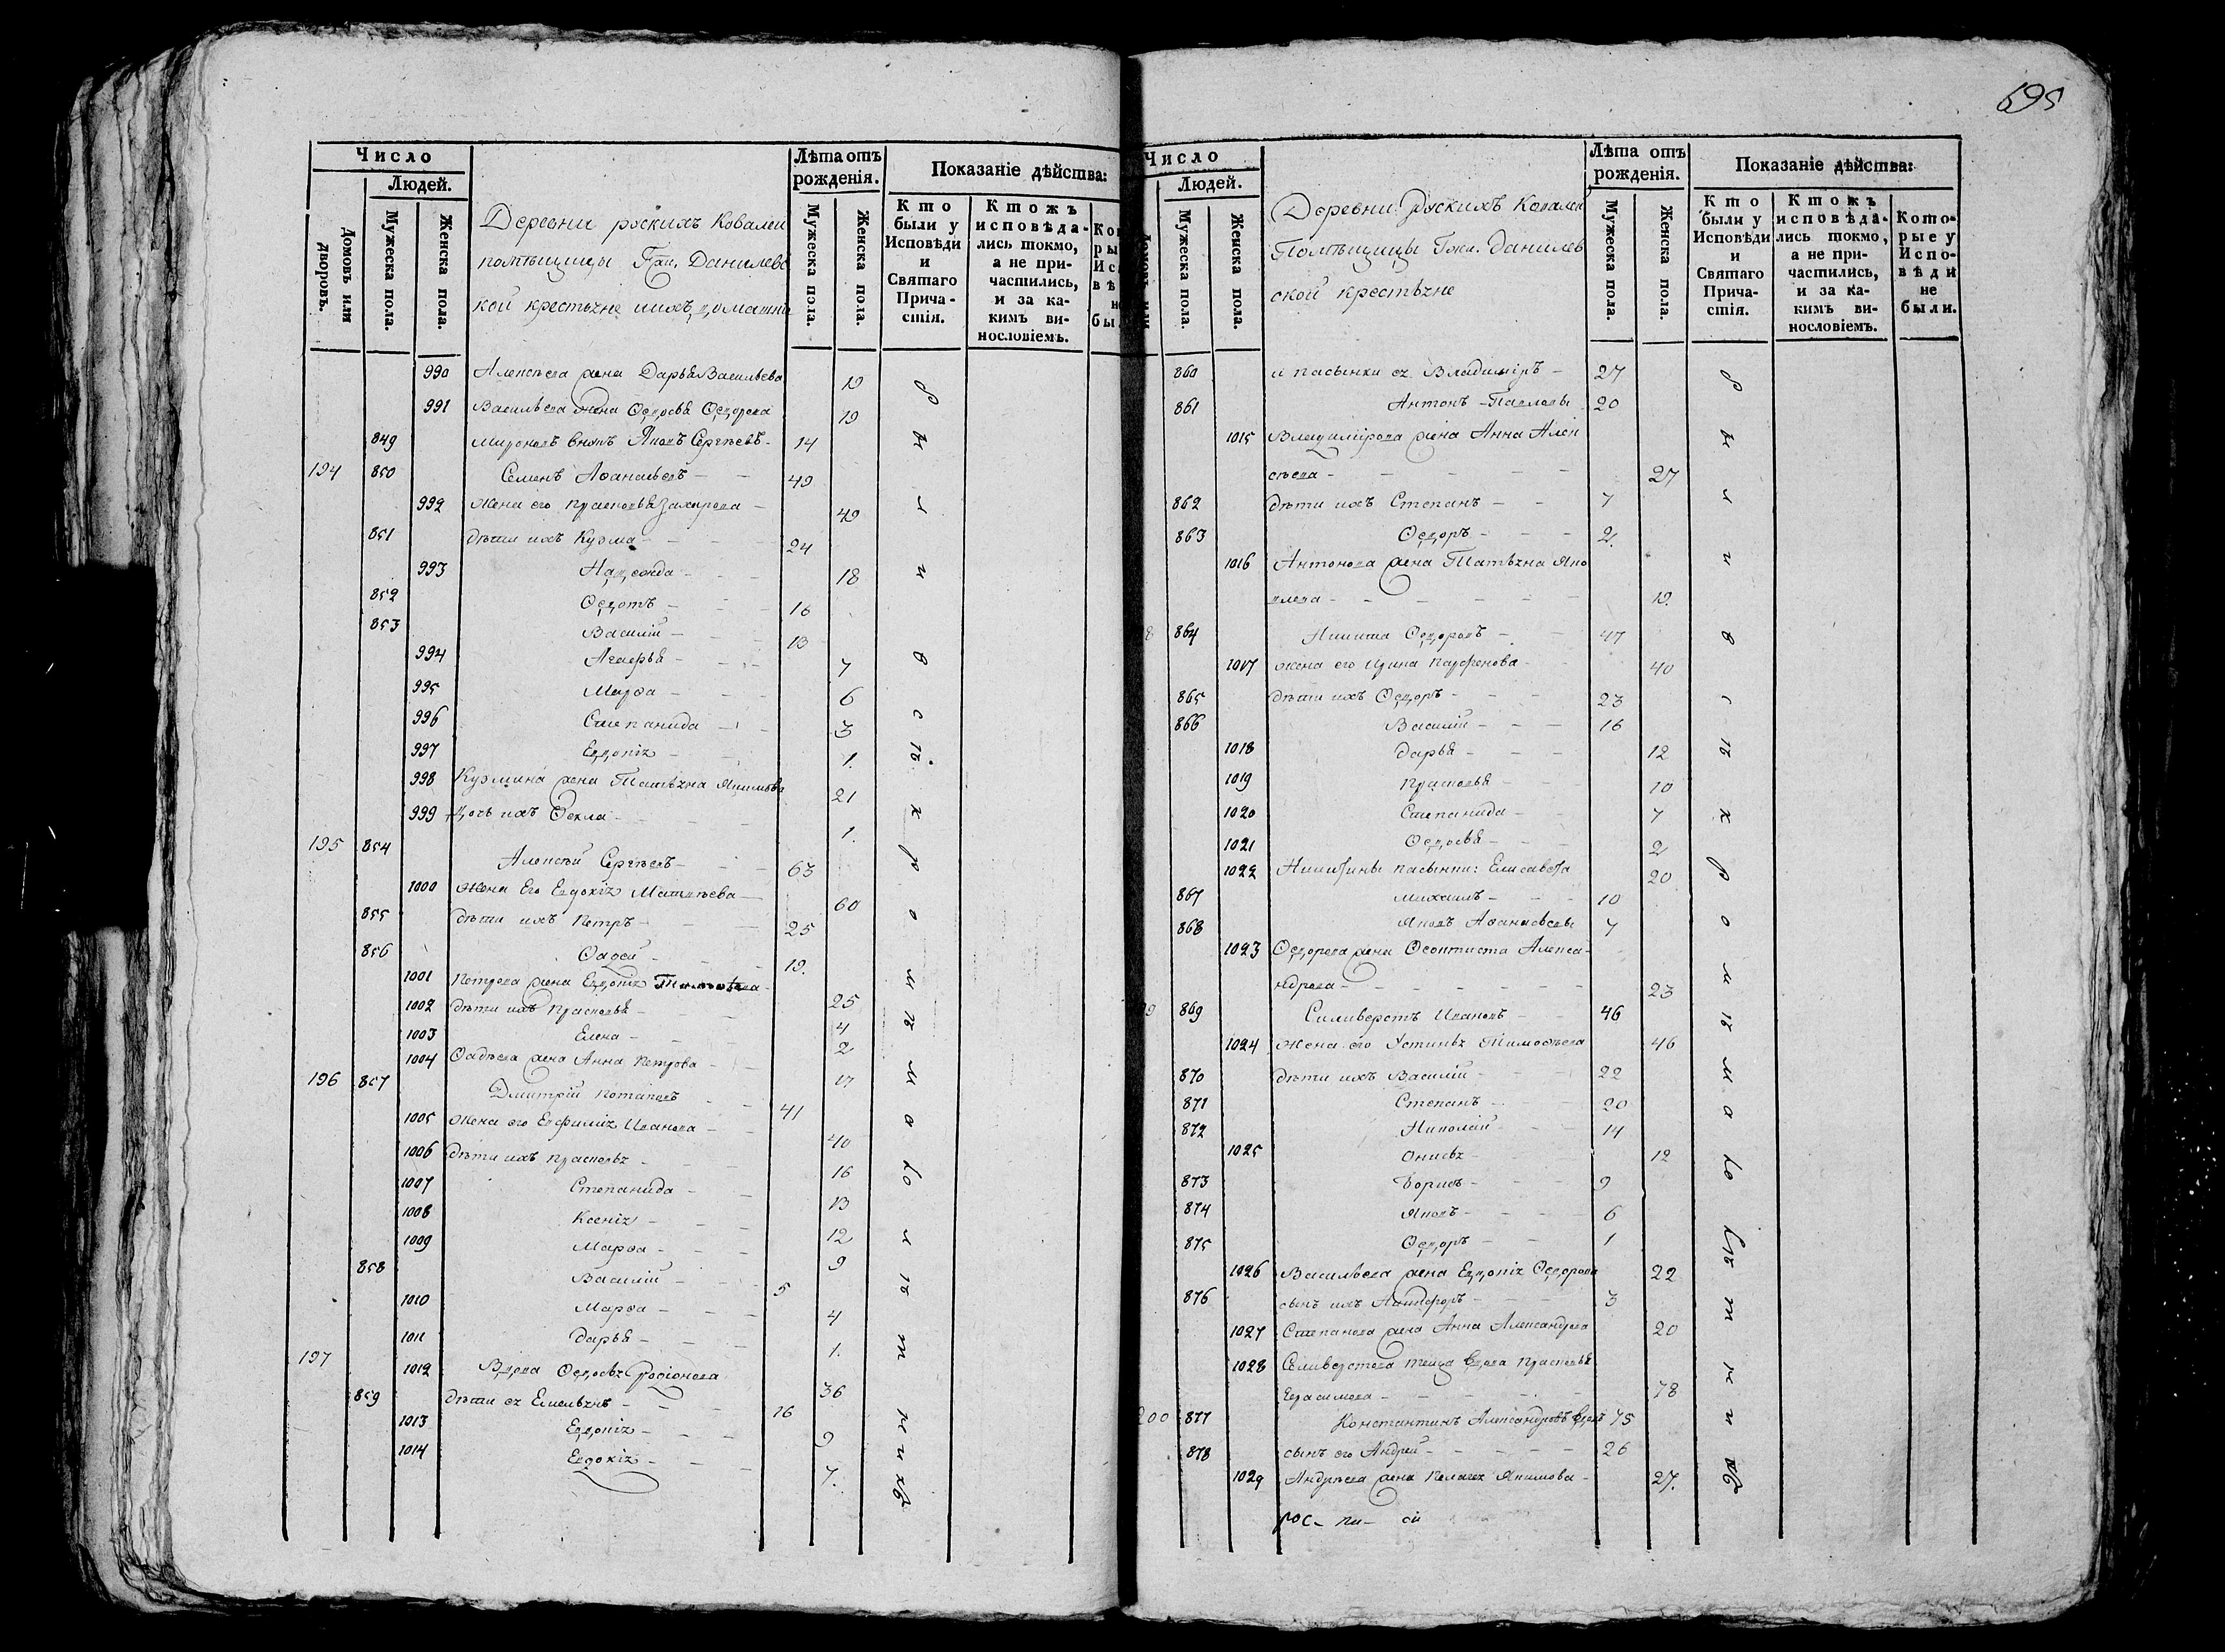 695
Число
Людей.
Домовъ или дворовъ.
Мужеска пола.
Женска пола.
Деревни рускихъ Ковалей
помѣщицы Гжи. Данилевс
кой крестьяне и ихъ домашни
Лѣта отъ рожденія.
Мужеска пола.
Женска пола.
Показаніе дѣйства:
Кто были у Исповѣди и Святаго Причастія.
Ктожъ исповѣдались токмо, а не причастились, и за какимъ винословіемъ.
990 Алексѣева жена Дарья Васильева 19
991 Васильева жена Ѳедосья Ѳедорова 19
849 Мироновъ внукъ Яковъ Сергѣевъ - 14
194 850 Семенъ Аѳанасьевъ - - 49
992 Жена его Прасковья Захарова - 49
851 дѣти ихъ Кузма - - - 24
993 Надежда - - 18
852 Ѳедотъ - - - 16
853 Василій - - - 13
994 Агафья - - - 7
995 Марѳа - - - 6
996 Степанида - - 3
997 Евдокія - - 1.
998 Кузмина жена Татьяна Якимова 21
999 дочь ихъ Ѳекла - - - 1.
195 854 Алексѣй Сергѣевъ - - 63
1000 Жена Его Евдокія Матвѣева - 60
855 дѣти ихъ Петръ - - - 25
856 Ѳадей - - - 19.
1001 Петрова жена Евдокія 25
1002 дѣти ихъ Прасковья - - - 4
1003 Елена - - - 2
1004 Ѳадѣева жена Анна Петрова - - 17
196 857 Дмитрій Потаповъ - - 41
1005 Жена его Евфимія Иванова - - 40
1006 дѣти ихъ Прасковья - - - 16
1007 Степанида - - 13
1008 Ксенія - - - 12
1009 Марѳа - - - 9
858 Василій - - - 5
1010 Марѳа - - - 4
1011 Дарья - - - 1.
197 1012 Вдова Ѳедосья Родіонова 36
859 дѣти ея Емельянъ - - - 16
1013 Евдокія - - - 9
1014 Евдокія - - - 7.
Число
Людей.
Мужеска пола.
Женска пола.
Деревни Рускихъ Ковалей
Помѣщицы Гжи. Данилев
ской крестьяне
Лѣта отъ рожденія.
Мужеска пола.
Женска пола.
Показаніе дѣйства:
Кто были у Исповѣди и Святаго Причастія.
Ктожъ исповѣдались токмо, а не причастились, и за какимъ винословіемъ.
Которые у Исповѣди не были.
860 и пасынки ея Владиміръ - 27
861 Антонъ - Павловы 20
1015 Владимірова жена Анна Алек
сѣева - - - - - - 27
862 дѣти ихъ Степанъ - - 7
863 Ѳедоръ - - - 2.
1016 Антонова жена Татьяна Яко
влева - - - - - - 19.
8 864 Никита Ѳедоровъ - - 47
1017 жена его Ирина Парфенова - 40
865 дѣти ихъ Ѳедоръ - - - 23
866 Василій - - - 16
1018 Дарья - - - 12
1019 Прасковья - - 10
1020 Степанида - - 7
1021 Ѳедосья - - 2
1022 Никитины пасынки: Елисавета 20
867 Михаилъ - - - 10
868 Яковъ Аѳанасьевы 7
1023 Ѳедорова жена Ѳеоктиста Алекса-
ндрова - - - - - - 23
9 869 Силиверстъ Ивановъ - - 46
1024 Жена его Устинья Тимоѳѣева 46
870 дѣти ихъ Василій - - - 22
871 Степанъ - - - 20
872 Николай - - - 14
1025 - - - 12
873 Борисъ - - - 9
874 Яковъ - - - 6
875 Ѳедоръ - - 1
1026 Васильева жена Евдокія Ѳедорова 22
876 сынъ ихъ Никифоръ - - - 3
1027 Степанова жена Анна Александрова 20
1028 Селиверстова теща вдова Прасковья
Герасимова - - - - - 78
200 877 Константинъ Александровъ вдовъ 75
878 сынъ его Андрей - - - - - 26
1029 Андрѣева жена Пелагея Якимова - 27.
рос- пи- си